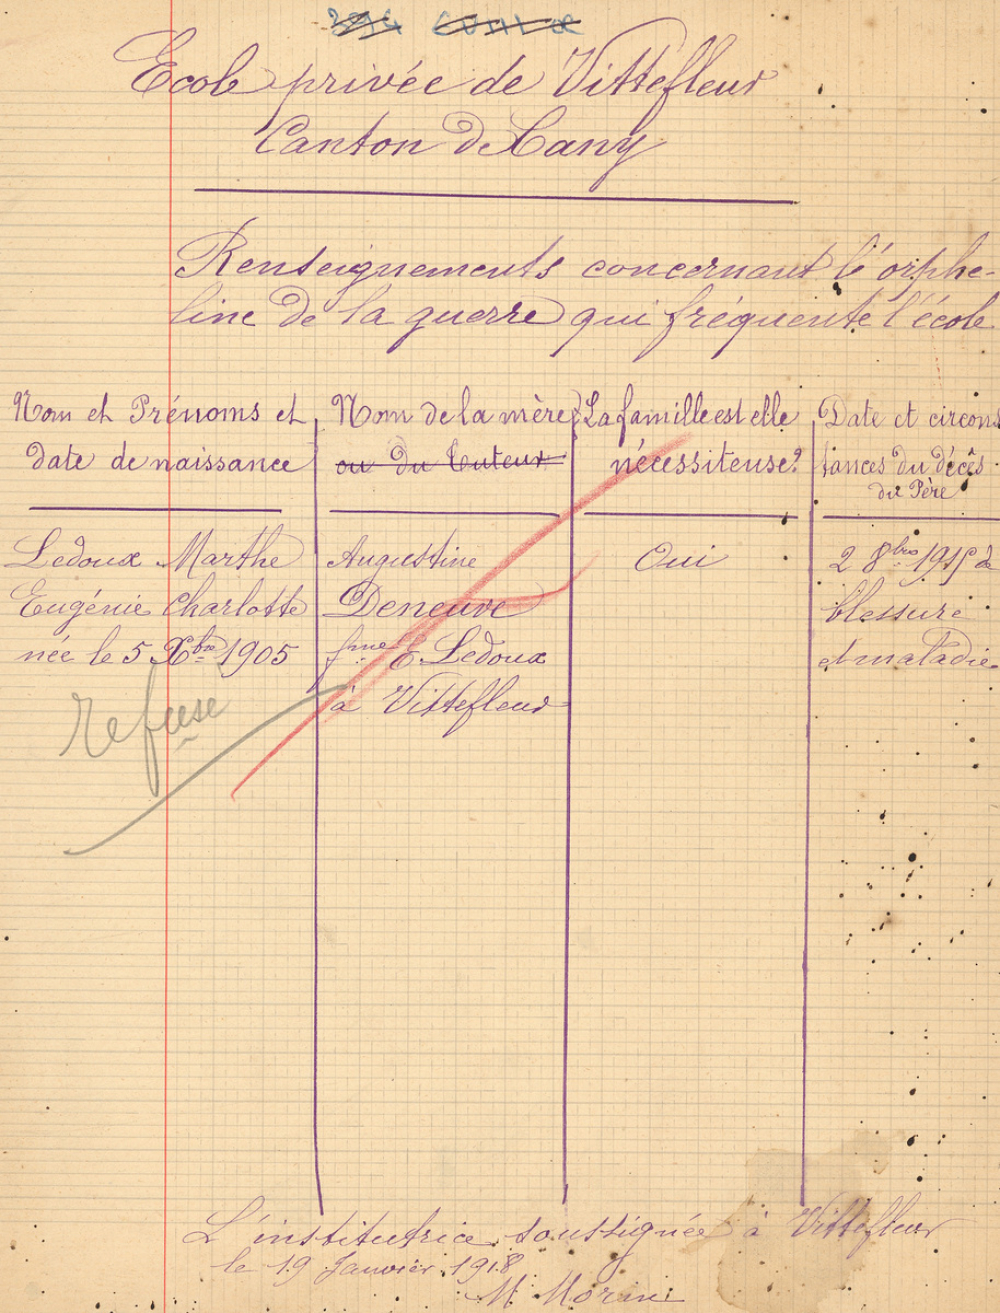 Ecole privée de Vittefleur
Canton de Cany
Renseignements concernant l'orphe-
line de la guerre qui fréquente l'école.
Nom et Prénoms et
date de naissance
Nom de la mère
ou du tuteur
La famille est elle
nécessiteuse?
Date et circons
tances du décès
du Père
Ledoux Marthe
Eugénie Charlotte
née le 5 Xbre 1905
Augustine
Deneuve
fme E. Ledoux
à Vittefleur
Oui
2 8bre 1915 de
blessure
et maladie
refuse
L'institutrice soussignée à Vittefleur
le 19 Janvier 1918
M Morin